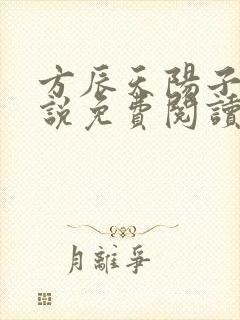 方辰天陽子
說免費閱讀
月離爭